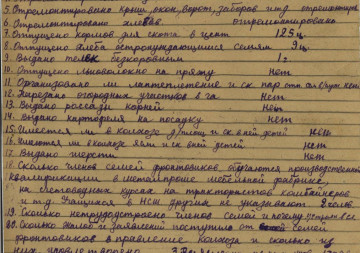 5. Отремонтировано крыш, окон, ворот, заборов и т.д.
6. Отремонтировано хлевов отремонтировано
7. Отпущено кормов для скота в цент 125 ц.
8. Отпущено хлеба остронуждающимся семьям 9 ц.
9. Выдано телок безкоровным 1 г
10. Отпущено льноволокно на пряжу нет
11. Организовано ли лаптеплетение и ск пар
12. Нарезано огородных участков в га нет
13. Выдано рассады корней нет
14. Выдано картофеля на посадку нет
15. Имеется ли в колхозе д/площ и ск в ней детей нет
16. Имеются ли в колхозе ясли и ск в ней детей нет
17. Выдано шерсти нет
18. Сколько членов семей фронтовиков обучаются производственной
квалификации в металлпроме мебельной фабрике,
на счетоводных курсах на трактористов комбайнеров
и т.д. Учащихся в НСШ других не указывают
19. Сколько нетрудоустроено членов семей и почему
20. Сколько жалоб и заявлений поступило от семей
фронтовиков в правление колхоза и сколько из
них удовлетворено